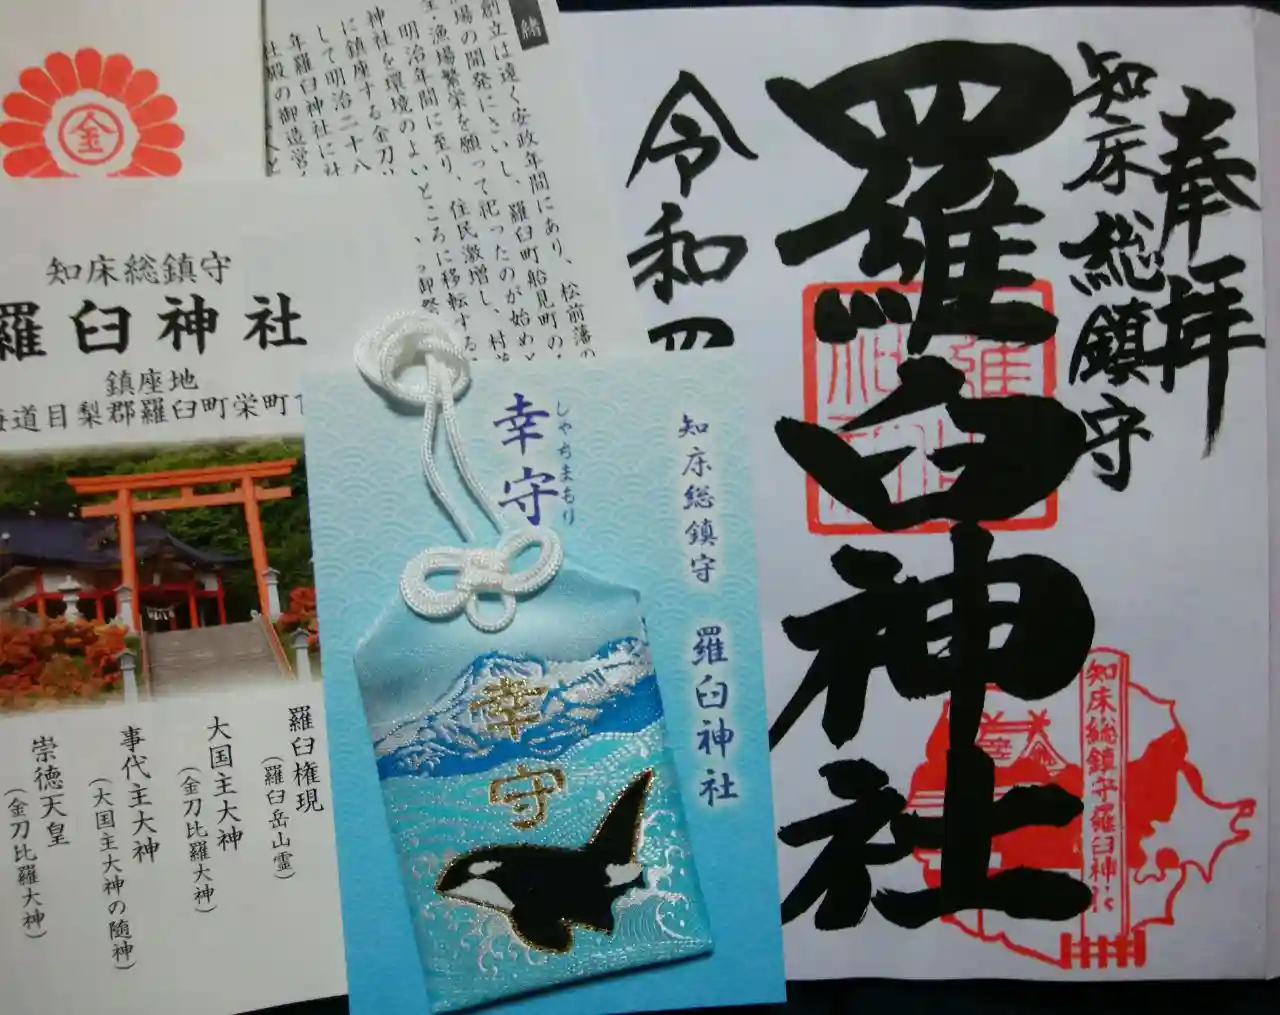 奉拝
知床総鎮守
羅臼神社
令和四
知床総鎮守羅臼神社
緒
創立は遠く安政年間にあり、松前藩の
場の開発にさいし、羅臼町船見町の
・漁場繁栄を願って祀ったのが始めと
明治年間に至り、住民激増し、村
神社を環境のよいところに移転する
に鎮座する金刀
して明治二十八
年羅臼神社に社
社殿の御造営
金
知床総鎮守
羅臼神社
鎮座地
海道目梨郡羅臼町栄町1
羅臼権現
(羅臼岳山霊)
大国主大神
(金刀比羅大神)
事代主大神
(大国主大神の随神)
崇徳天皇
(金刀比羅大神)
知床総鎮守 羅臼神社
幸守
しゃちまもり
幸守